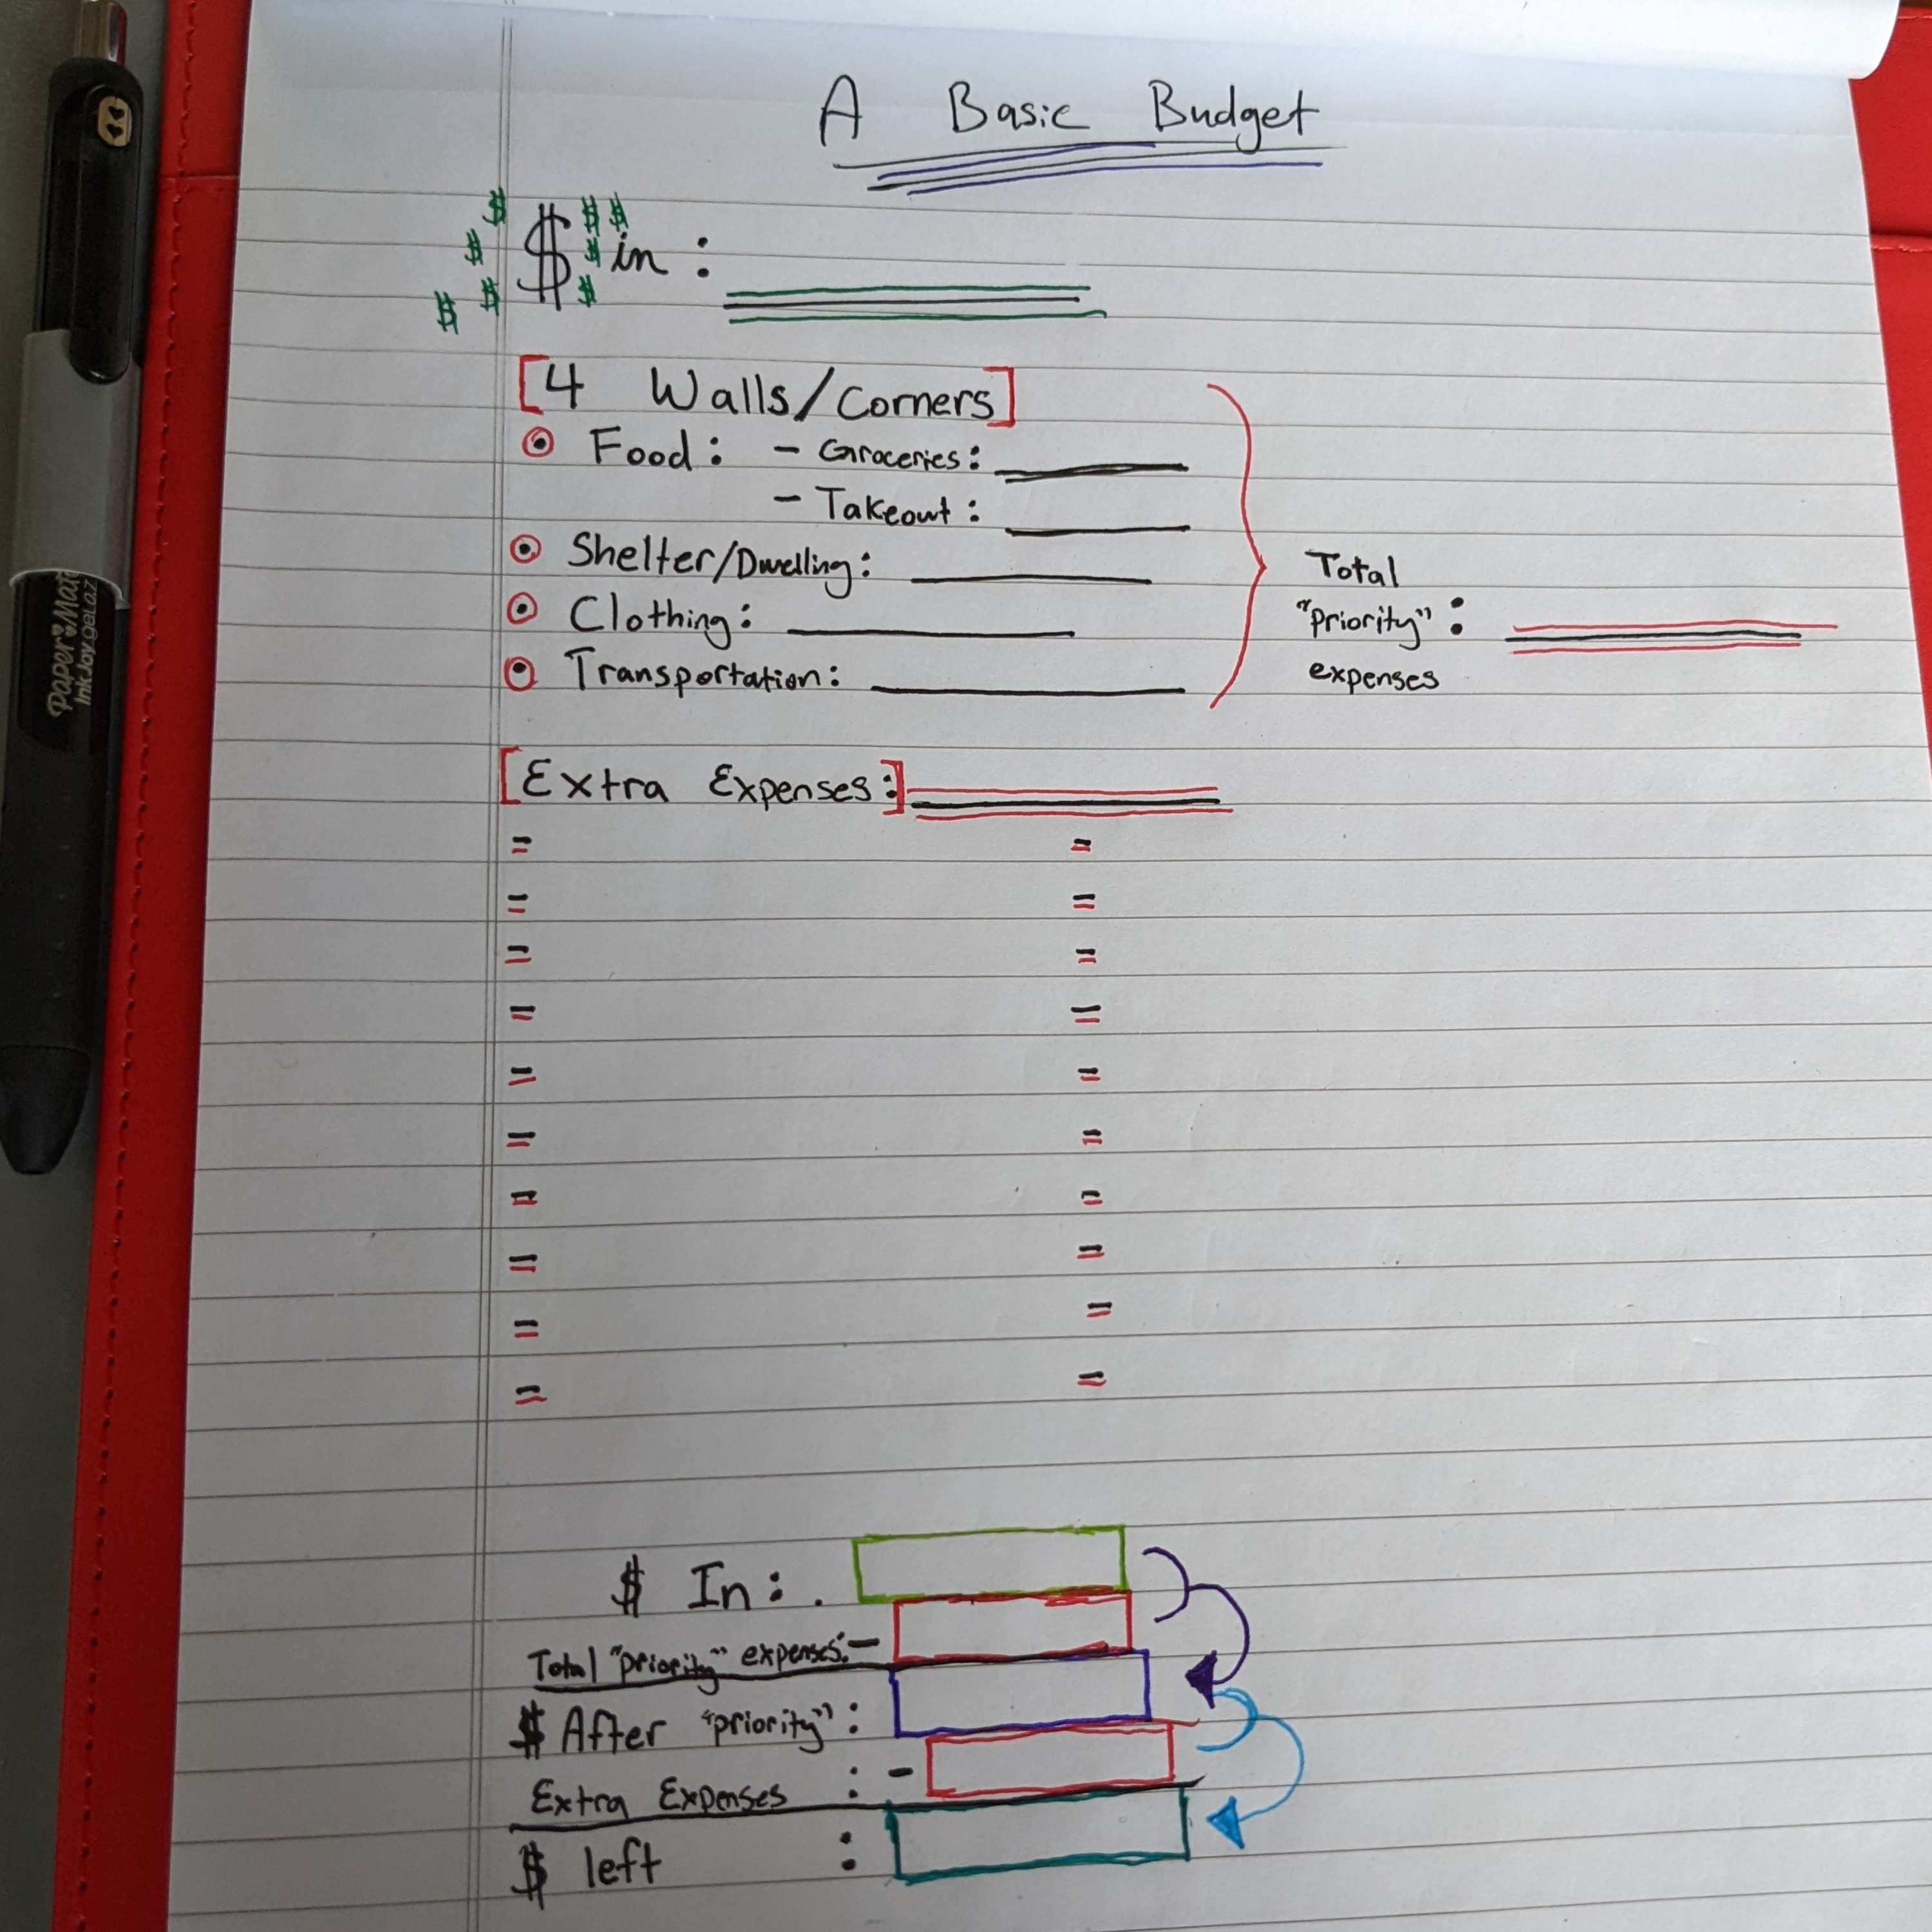 A Basic Budget
$ in :
$ $ $ $ $ $ $ $
[4 Walls/Corners]
Food: - Groceries:
- Takeout:
Shelter/Dwelling:
Clothing:
Transportation:
Total
"priority":
expenses
[Extra Expenses:]
= =
= =
= =
= =
= =
= =
= =
= =
= =
= =
$ In: .
Total "priority" expenses: -
$ After "priority":
Extra Expenses : -
$ left :
Paper Mate
InkJoy gel 0.7